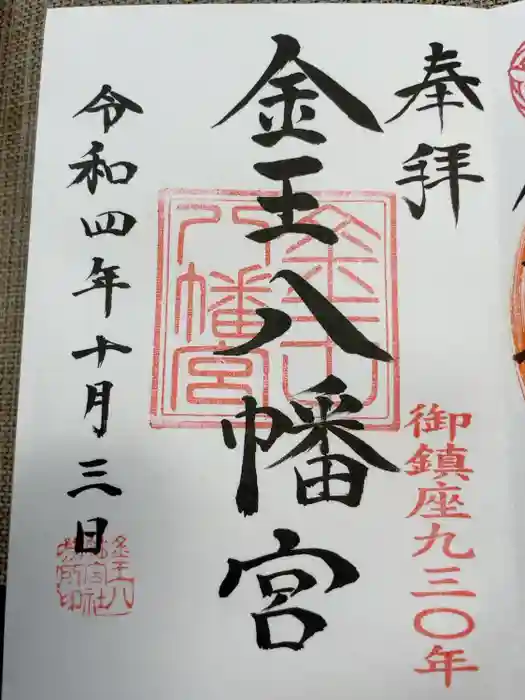 奉拝
御鎮座九三〇年
金王八幡宮
金王八幡宮
令和四年十月三日